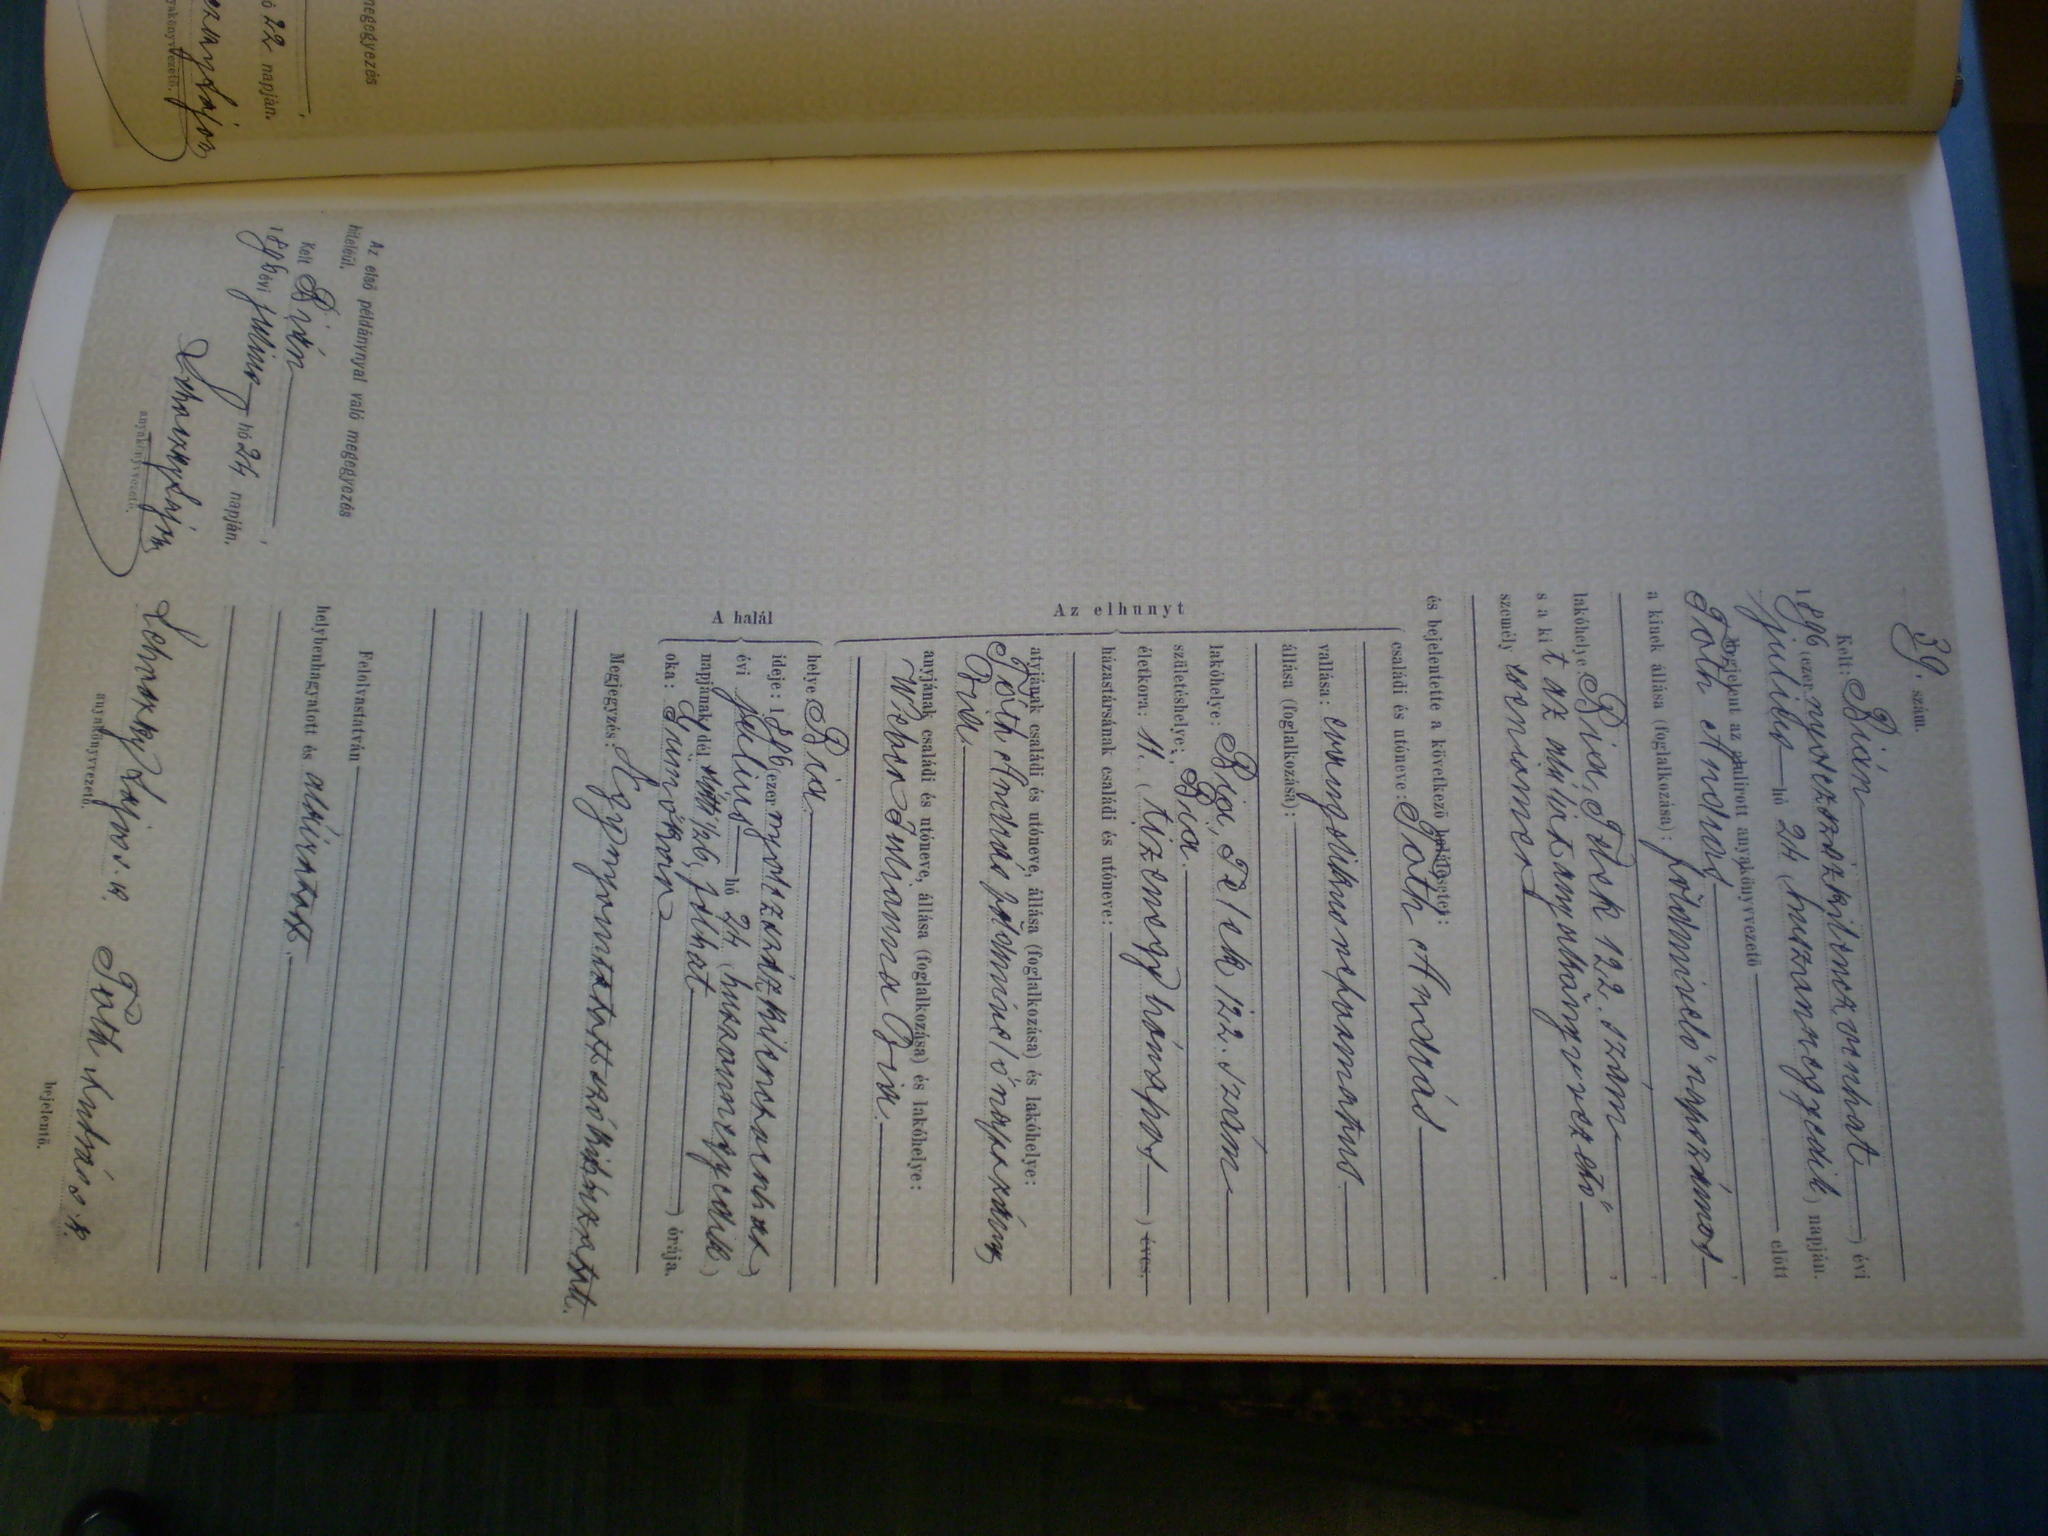 megegyezés
22 napján.
39. szám.
Kelt: Bián
1896 (ezer nyolczszázkilenczvenhat) évi
julius hó 24 (huszannegyedik) napján.
Megjelent az alulírott anyakönyvvezető előtt
Tóth András,
a kinek állása (foglalkozása): földmivelő napszámos,
lakóhelye Bia, Telek 122. szám,
s a kit az alulirt anyakönyvvezető
személyesen ismer,
és bejelentette a következő halálesetet:
Az elhunyt
családi és utóneve: Tóth András
vallása: evangelikus reformatus
állása (foglalkozása):
lakóhelye: Bia, Telek 122. szám
születéshelye: Bia.
életkora: 11. (tizenegy hónapos) éves.
házastársának családi és utóneve:
atyjának családi és utóneve, állása (foglalkozása) és lakóhelye:
Tóth András
Bia.
anyjának családi és utóneve, állása (foglalkozása) és lakóhelye:
Julianna Bia.
A halál
helye Bia.
ideje: 1896 (ezer nyolczszázkilenczvenhat)
évi julius hó 24 (huszannegyedik)
napjának dél előtti 1/2 6, félhat órája.
oka:
Megjegyzés: Egy nyomtatott szó kihuzatott.
Felolvastatván
helybenhagyatott és aláiratott.
Lajos. k.
anyakönyvvezető.
Tóth András. k.
bejelentő.
Az első példánynyal való megegyezés
hiteléül.
Kelt Bián,
1896 évi julius hó 24 napján.
Lajos
anyakönyvvezető.